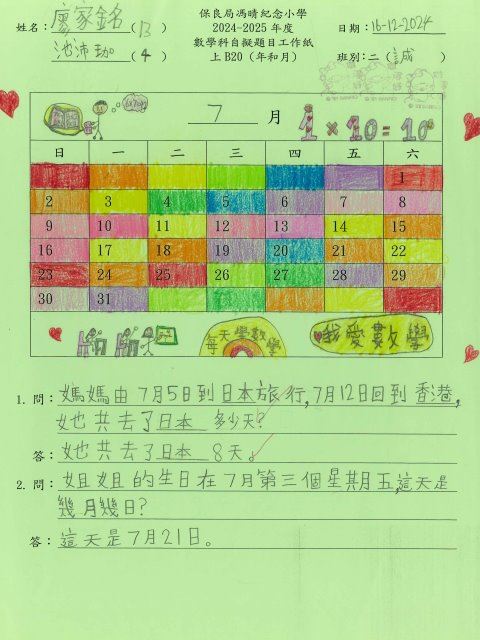 保良局馮晴紀念小學
姓名：廖家銘(13)
2024-2025 年度
日期：16-12-2024
數學科自擬題目工作紙
池沛㻛(4)
上 B20（年和月）
班別：二（誠）
7 月
1 × 10 = 10
日 一 二 三 四 五 六
1
2 3 4 5 6 7 8
9 10 11 12 13 14 15
16 17 18 19 20 21 22
23 24 25 26 27 28 29
30 31
每天學數學
我愛數學
1. 問：媽媽由 7月5日到日本旅行,7月12日回到香港,
她共去了日本 多少天?
答：她共去了日本 8天。
2. 問：姐姐的生日在7月第三個星期五,這天是
幾月幾日?
答：這天是7月21日。